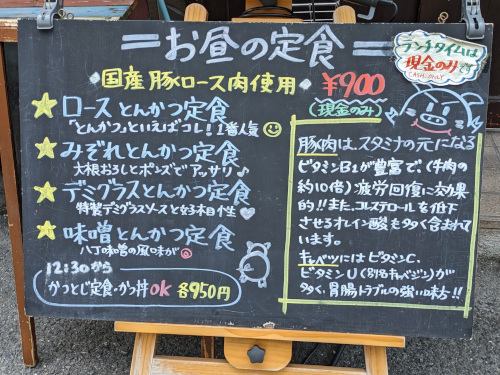 お昼の定食
ランチタイムは
現金のみ
CASH ONLY
国産豚ロース肉使用
¥900
(現金のみ)
ロースとんかつ定食
"とんかつ"といえばコレ!1番人気
みぞれとんかつ定食
大根おろしとポンズでアッサリ♪
デミグラスとんかつ定食
特製デミグラスソースと好相性
味噌とんかつ定食
八丁味噌の風味が◎
12:30から
かつとじ定食・かつ丼ok 各950円
豚肉は、スタミナの元になる
ビタミンB1が豊富で、(牛肉の
約10倍)疲労回復に効果
的!!また、コレステロールを低下
させるオレイン酸も多く含まれて
います。
キャベツにはビタミンC、
ビタミンU(別名キャベジン)が
多く、胃腸トラブルの強い味方!!